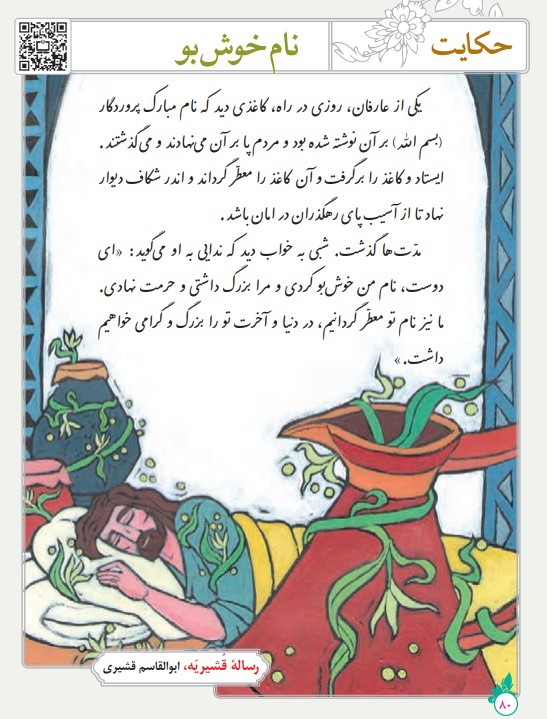 حکایت
نام خوش‌بو
یکی از عارفان، روزی در راه، کاغذی دید که نام مبارک پروردگار
(بسم الله) بر آن نوشته شده بود و مردم پا بر آن می‌نهادند و می‌گذشتند.
ایستاد و کاغذ را برگرفت و آن کاغذ را معطّر گرداند و اندر شکاف دیوار
نهاد تا از آسیب پای رهگذران در امان باشد.
مدّت‌ها گذشت. شبی به خواب دید که ندایی به او می‌گوید: «ای
دوست، نام من خوش‌بو کردی و مرا بزرگ داشتی و حرمت نهادی.
ما نیز نام تو معطّر گردانیم، در دنیا و آخرت تو را بزرگ و گرامی خواهیم
داشت.»
رسالهٔ قُشیریّه، ابوالقاسم قشیری
۸۰